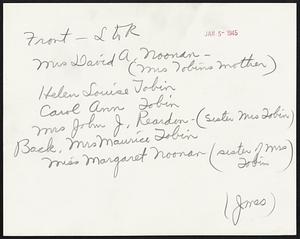 Front - L to R
JAN 5 - 1945
Mrs David A. Noonan -
(Mrs Tobins mother)
Helen Louise Tobin
Carol Ann Tobin
Mrs John J. Reardon - (sister Mrs Tobin)
Back, Mrs Maurice Tobin
Miss Margaret Noonan (sister of Mrs
Tobin
(Jones)